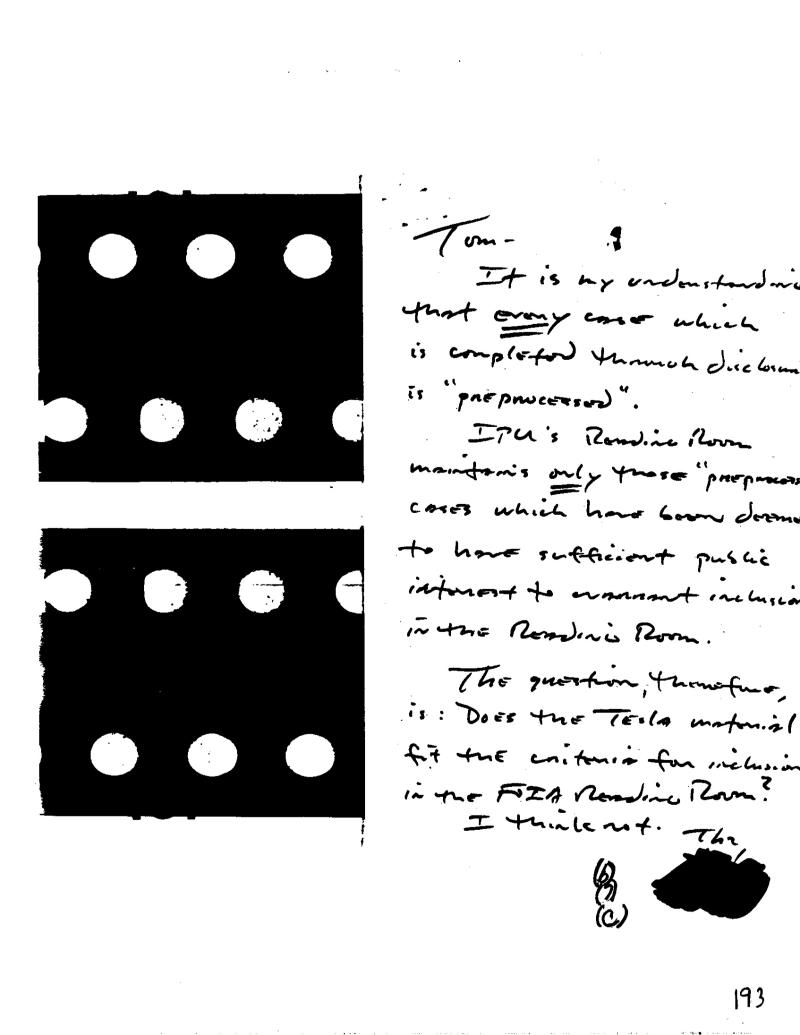 Tom-
It is my understandin
that every case which
is completed through disclosur
is "preprocessed".
IPU's Reading Room
maintains only those "preproces
cases which have been deeme
to have sufficient public
interest to warrant inclusion
in the Reading Room.
The question, therefore,
is: Does the TESLA material
fit the criteria for inclusion
in the FOIA Reading Room?
I think not. Thx
(b)
(7)
(C)
193